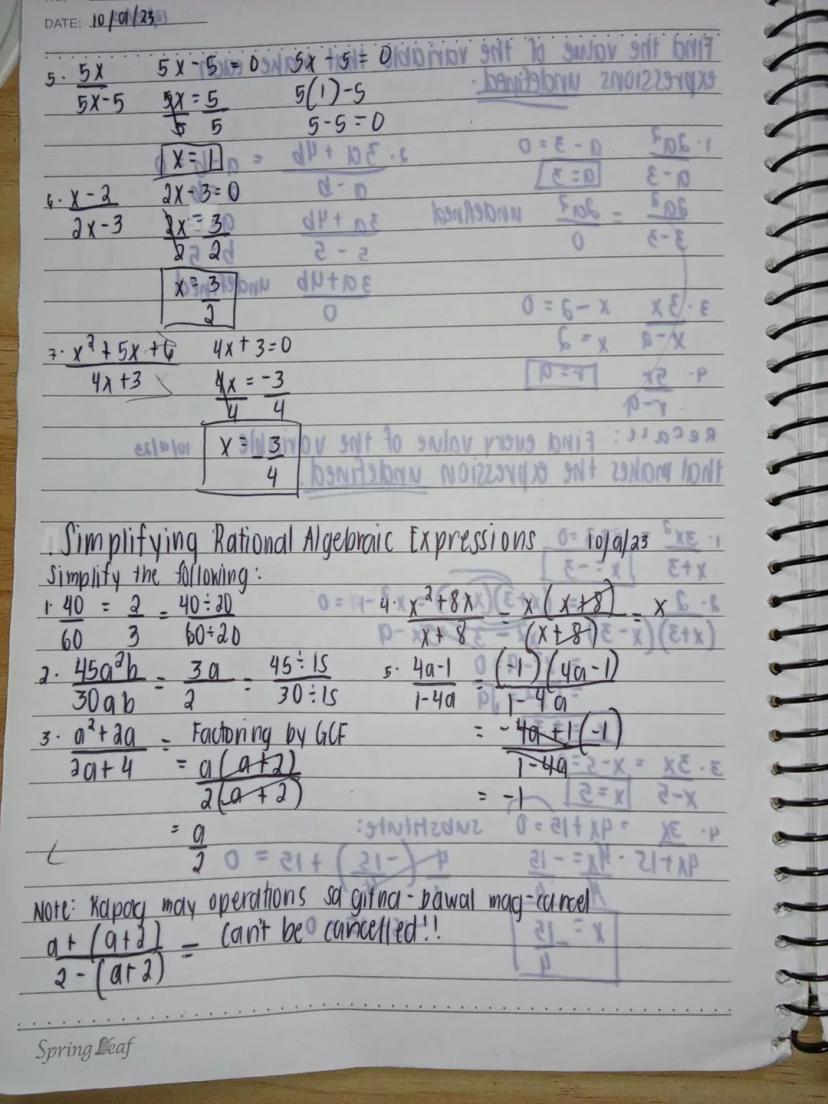 DATE: 10/9/23
5. 5x/5x-5 5x-5=0 5x+5=0
5x/5 = 5/5 5(1)-5
5-5=0
x=1
6. x-2/2x-3 2x-3=0
2x/2 = 3/2
x = 3/2
7. x²+5x+6/4x+3 4x+3=0
4x/4 = -3/4
x = -3/4
Simplifying Rational Algebraic Expressions 10/9/23
Simplify the following:
1. 40/60 = 2/3 = 40÷20/60÷20 4. x²+8x/x+8 = x(x+8)/(x+8) = x
2. 45a²b/30ab = 3a/2 = 45÷15/30÷15 5. 4a-1/1-4a = (-1)(4a-1)/1-4a
3. a²+2a/2a+4 = Factoring by GCF = -4a+1(-1)/1-4a
= a(a+2)/2(a+2) = -1
= a/2
Note: Kapag may operations sa gitna-bawal mag-cancel
a+(a+2)/2-(a+2) = Can't be cancelled!!
Spring Leaf